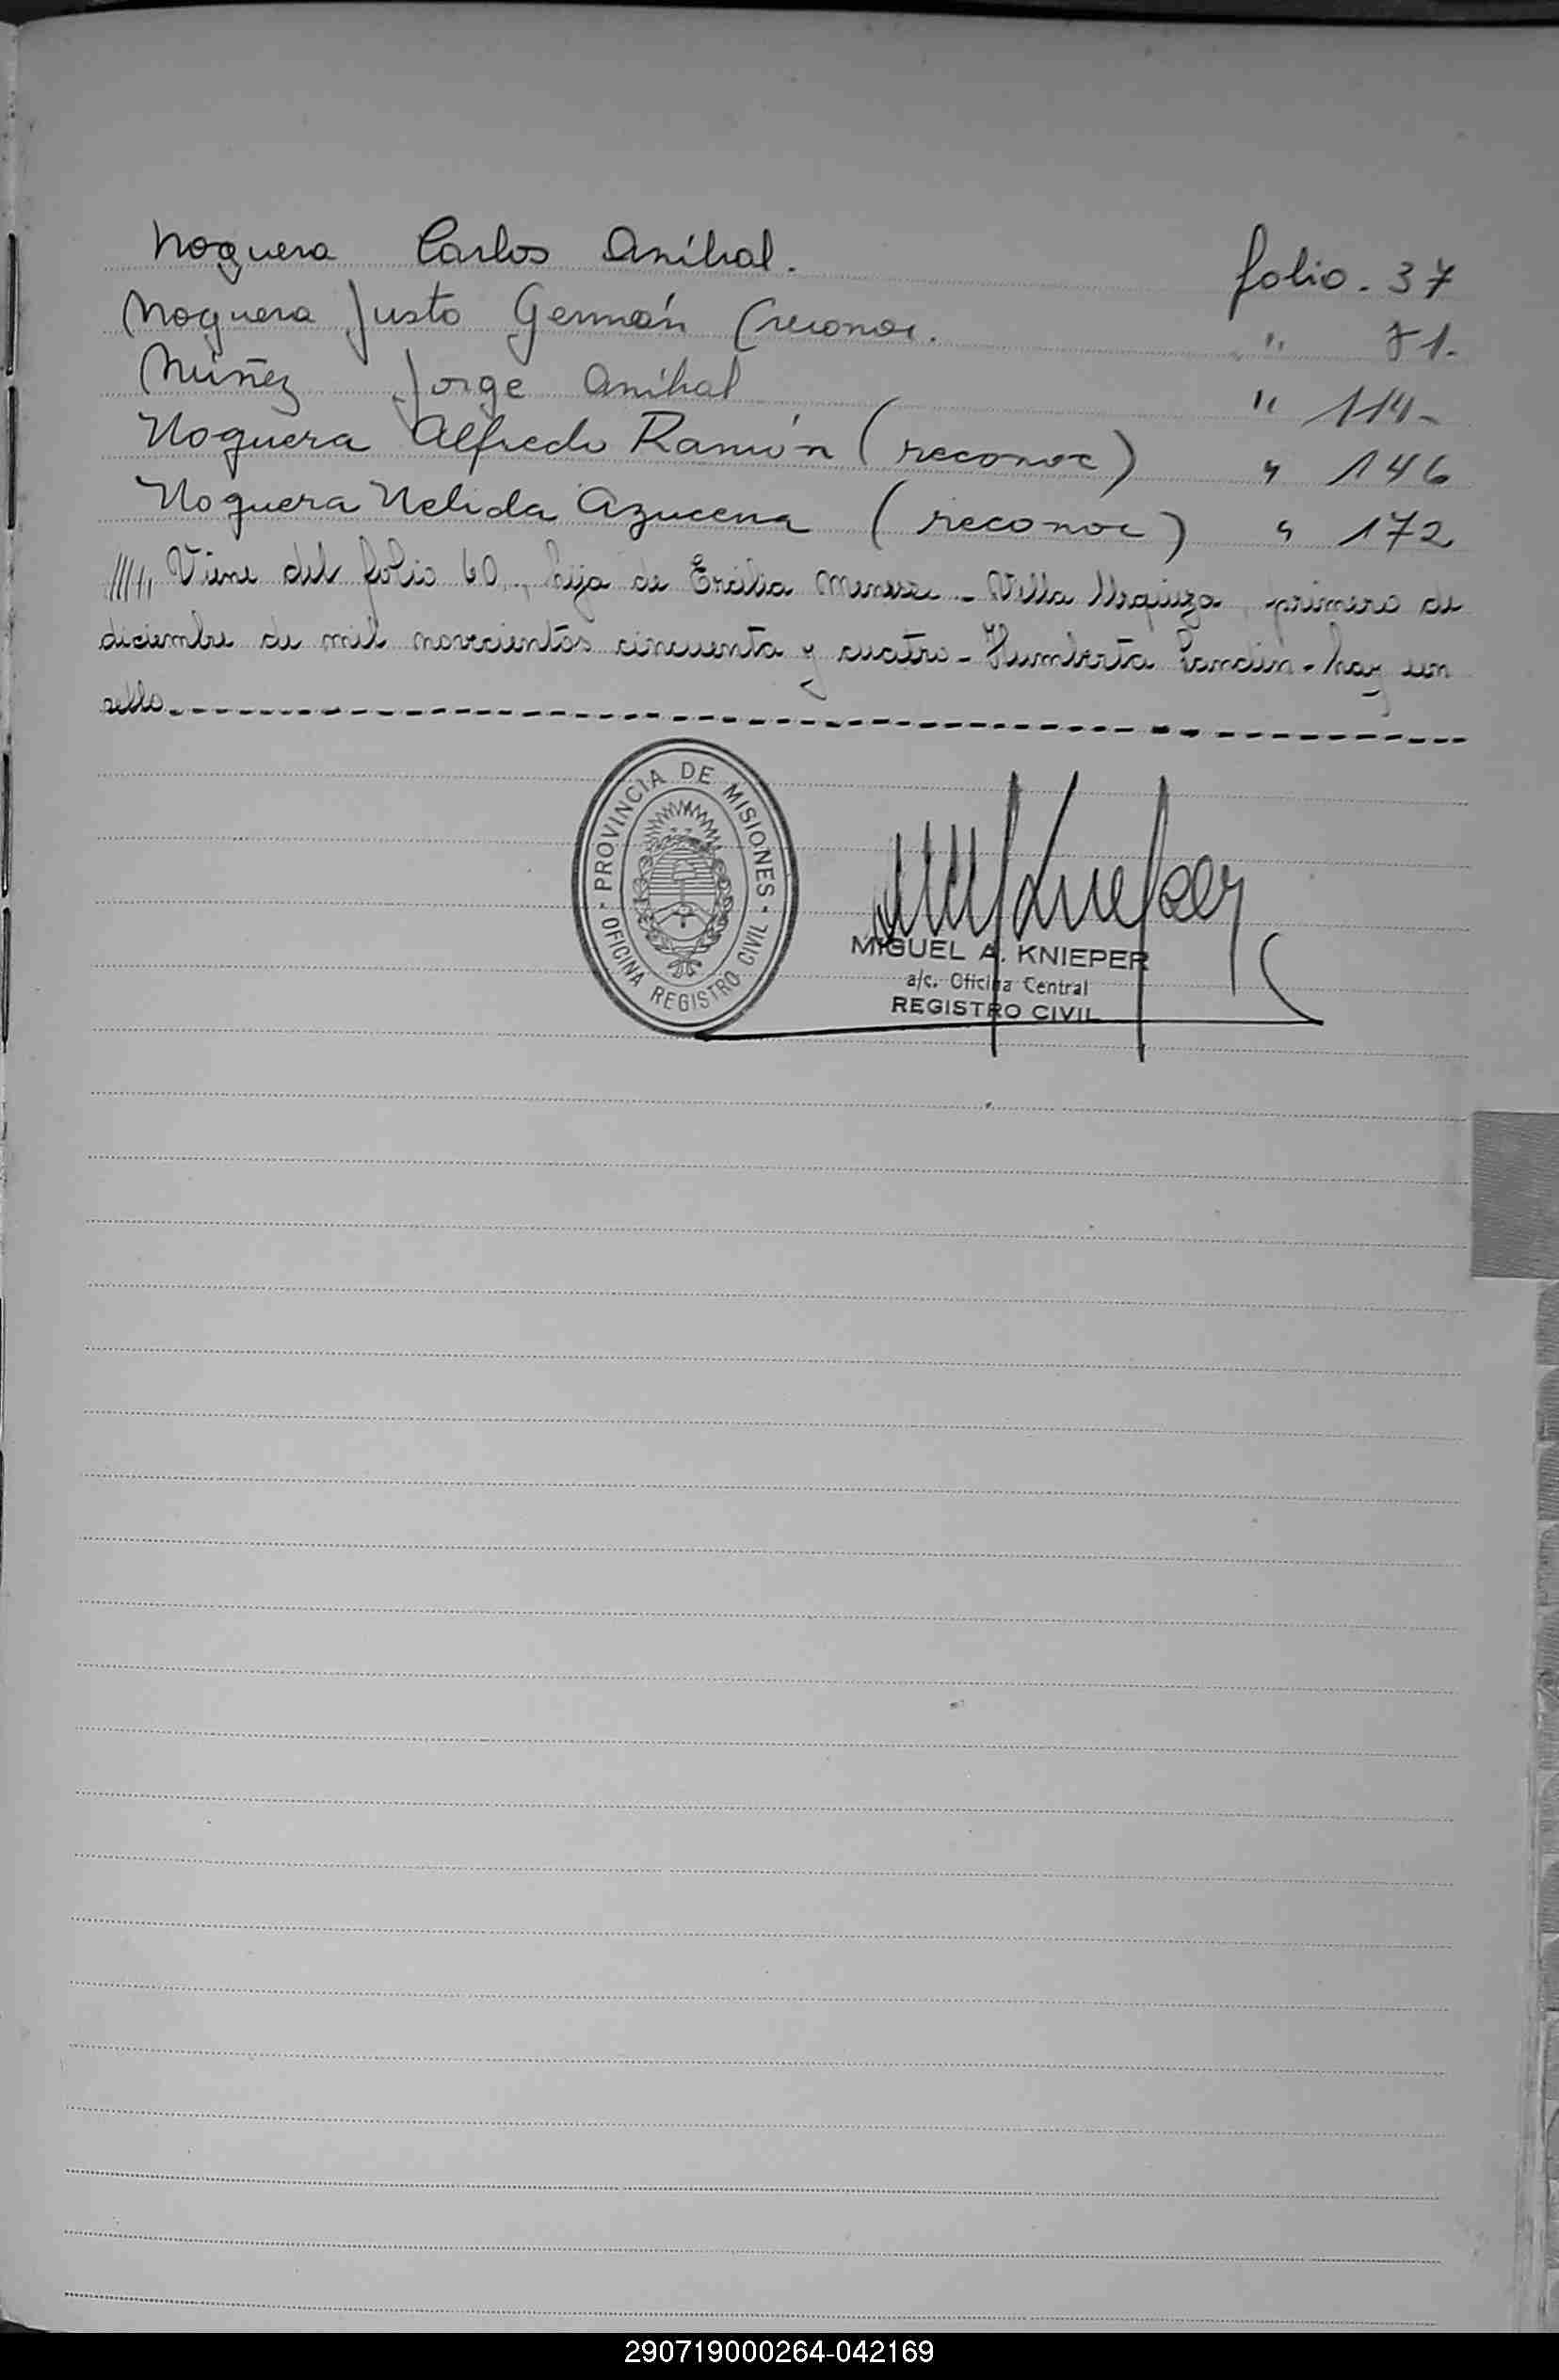 Noguera Carlos Aníbal. folio. 37
Noguera Justo Germán (reconoc. " 71.
Núñez Jorge Aníbal " 114-
Noguera Alfredo Ramón (reconoc) " 146
Noguera Nelida Azucena (reconoc) " 172
///// Viene del folio 60., hija de Ercilia - Villa Urquiza, primero de
diciembre de mil novecientos cincuenta y cuatro - Humberta - hay un
sello.
PROVINCIA DE MISIONES
OFICINA REGISTRO CIVIL
MIGUEL A. KNIEPER
a/c. Oficina Central
REGISTRO CIVIL
290719000264-042169